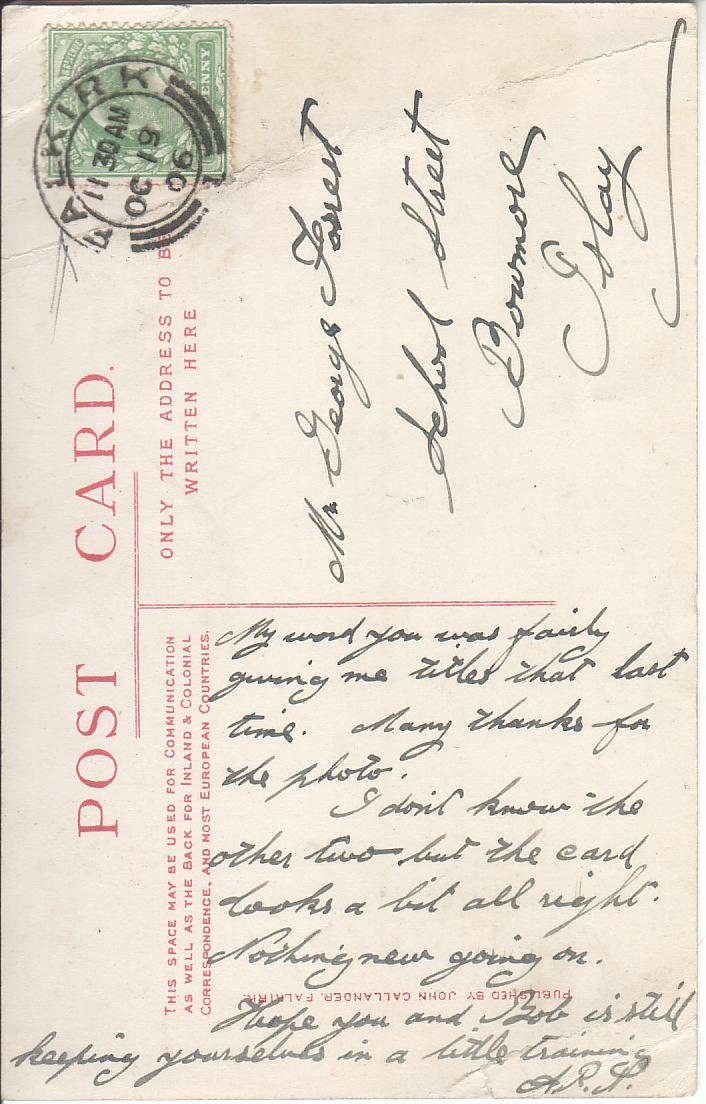 POST CARD.
THIS SPACE MAY BE USED FOR COMMUNICATION
AS WELL AS THE BACK FOR INLAND & COLONIAL
CORRESPONDENCE, AND MOST EUROPEAN COUNTRIES.
ONLY THE ADDRESS TO BE
WRITTEN HERE
FALKIRK
11 30 AM
OC 19
06
Mr George Forrest
School Street
Bowmore
Islay
My word you was fairly
giving me titles that last
time. Many thanks for
the photo.
I don't know the
other two but the card
looks a bit all right.
Nothing new going on.
PUBLISHED BY JOHN CALLANDER, FALKIRK.
Hope you and Bob is still
keeping yourselves in a little training